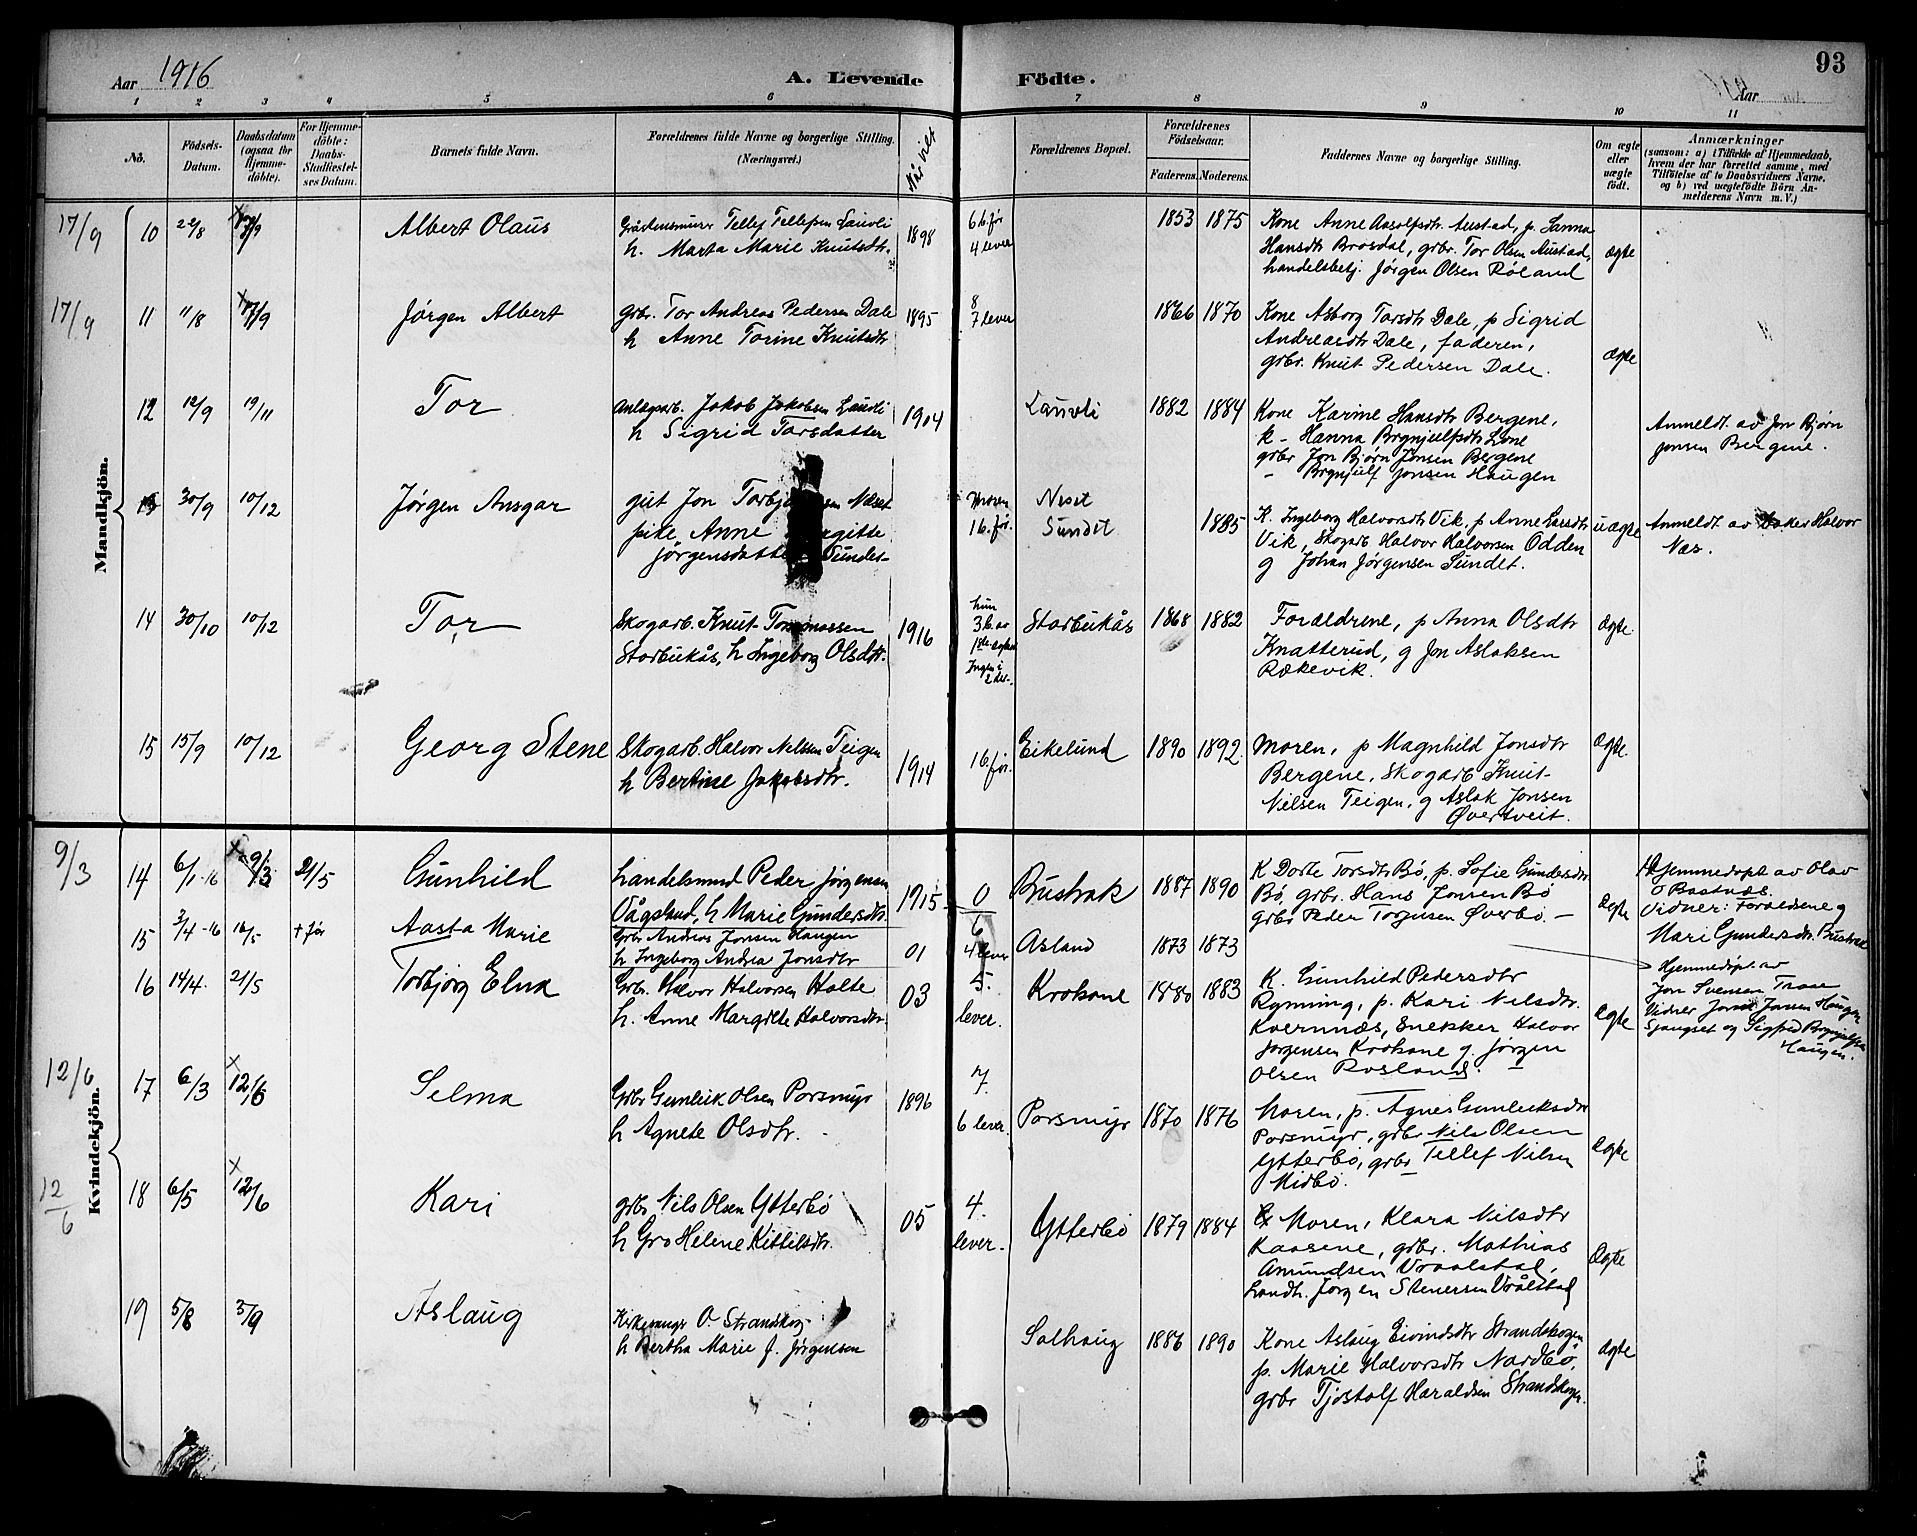 93
Aar 1916
A. Levende Födte.
Aar
1 2 3 4 5 6 7 8 9 10 11
No.
Födsels-Datum.
Daabsdatum (ogsaa for Hjemme-döbte).
For Hjemme-döbte: Daabs-Stadfæstel-ses Datum.
Barnets fulde Navn.
Forældrenes fulde Navne og borgerlige Stilling. (Næringsvei.)
Når viet
Forældrenes Bopæl.
Forældrenes Födselsaar.
Faderens. Moderens.
Faddernes Navne og borgerlige Stilling.
Om ægte eller uægte födt.
Anmærkninger
(saasom: a) i Tilfælde af Hjemmedaab, hvem der har forrettet samme, med Tilföielse af to Daabsvidners Navne, og b) ved uægtefödte Börn Anmelderens Navn m. V.)
Mandkjön.
17/9 10 22/8 17/9 Albert Olaus
Tellef Tellefsen Lauvli
h. Marta Marie Knutsdtr.
1898
6 b. før
4 lever
1853 1875
Kone Anne Aasolfsdtr Austad, p. Sanna
Hansdtr Brosdal, grbr. Tor Olsen Austad,
handelsbetj. Jørgen Olsen Røland
ægte
17/9 11 11/8 17/9 Jørgen Albert
grbr. Tor Andreas Pedersen Dale
h Anne Torine Knutsdtr
1895
8
7 lever
1866 1870
Kone Asborg Tarsdtr Dale, p Sigrid
Andreasdtr Dale, faderen,
grbr. Knut Pedersen Dale.
ægte
12 12/9 19/11 Tor
Anlægsarb. Jakob Jakobsen Lauvli
h Sigrid Tarsdatter
1904
Lauvli 1882 1884
Kone Karine Hansdtr Bergene,
k – Hanna Brynjulfsdtr Lone
grbr Jon Bjørn Jonsen Bergene
– Brynjulf Jonsen Haugen
Anmeldt av Jon Bjørn
Jonsen Bergene.
30/9 10/12 Jørgen Ansgar
gut Jon Næset
pike Anne
Jörgensdatter Sundet
Moren
1 b. før.
Neset
Sundet
1885
K. Ingeborg Halvorsdtr Vik, p Anne Larsdtr
Vik, Skogarb Halvor Halvorsen Odden
g Johan Jørgensen Sundet.
uægte
Anmeldt av Baker Halvor
Næs.
14 30/10 10/12 Tor
Skogarb. Knut Tommassen
Storbukås, h Ingeborg Olsdtr.
1916
hun
3 b. av
1ste ægtesk
Ingen i
2det.
Storbukås 1868 1882
Forældrene, p Anna Olsdtr
Knatterud, g Jon Aslaksen
Rækevik.
ægte
15 15/9 10/12 Georg Stene
Skogarb. Halvor Nilsen Teigen
h Bertine Jakobsdtr.
1914
1 b. før.
Eikelund 1890 1892
Moren, p Magnhild Jonsdtr
Bergene, Skogarb Knut
Nilsen Teigen, g Aslak Jonsen
Øvertveit.
ægte
Kvindekjön.
9/3 14 6/1-16 9/3 21/5 Gunhild
Handelsmand Peder Jørgensen
Vågslund, h Marie Gundersdtr.
1915
0
Bustrak 1887 1890
K Dorte Torsdtr Bø, p. Sofie Gundersdtr
Bø, grbr. Hans Jonsen Bø
grbr Peder Torgusen Øverbø. –
ægte
Hjemmedøpt av Olav
O Bastnæs.
Vidner: Foreldrene og
Mari Gundersdtr. Bustrak
15 3/4-16 16/5 + før Aasta Marie
Grbr Andreas Jonsen Haugen
h Ingeborg Andrea Jonsdtr
01
6
4 lever
Asland 1873 1873
Hjemmedøpt av
Jon Svensen Traae
Vidner Jonsen Haugen
16 14/4. 21/5 Torbjørg Elna
Grbr. Halvor Halvorsen Holte
h. Anne Margitte Halvorsdtr.
03
5.
lever.
Krokane 1880 1883
K. Gunhild Pedersdtr
Rynning, p. Kari Nilsdtr.
Kvernnæs, Snekker Halvor
Jørgensen Krokane g. Jørgen
Olsen Rosland.
ægte
12/6 17 6/3 12/6 Selma
Grbr Gunleik Olsen Porsmyr
h Agnete Olsdtr.
1896
7.
6 lever.
Porsmyr 1870 1876
Moren, p. Agnes Gunleiksdtr
Porsmyr, grbr Nils Olsen
Ytterbø, grbr Tellef Nilsen
Midbø.
Ægte
12/6 18 6/5 12/6 Kari
grbr Nils Olsen Ytterbø
h Gro Helene Kittilsdtr.
05
4.
lever.
Ytterbø 1879 1884
Moren, Klara Nilsdtr
Kaasene, grbr. Mathias
Amundsen Vraalstad,
Landh. Jørgen Stenersen Vrålstad
Ægte
19 5/8 3/9 Aslaug
Kirkesanger O. Strandskog
h Bertha Marie J. Jørgensen
Solhaug 1886 1890
Kone Aslaug Eivindsdtr Strandskogen
p. Marie Halvorsdtr Nordbø,
grbr Tjøstolf Haraldsen Strandskogen.
ægte